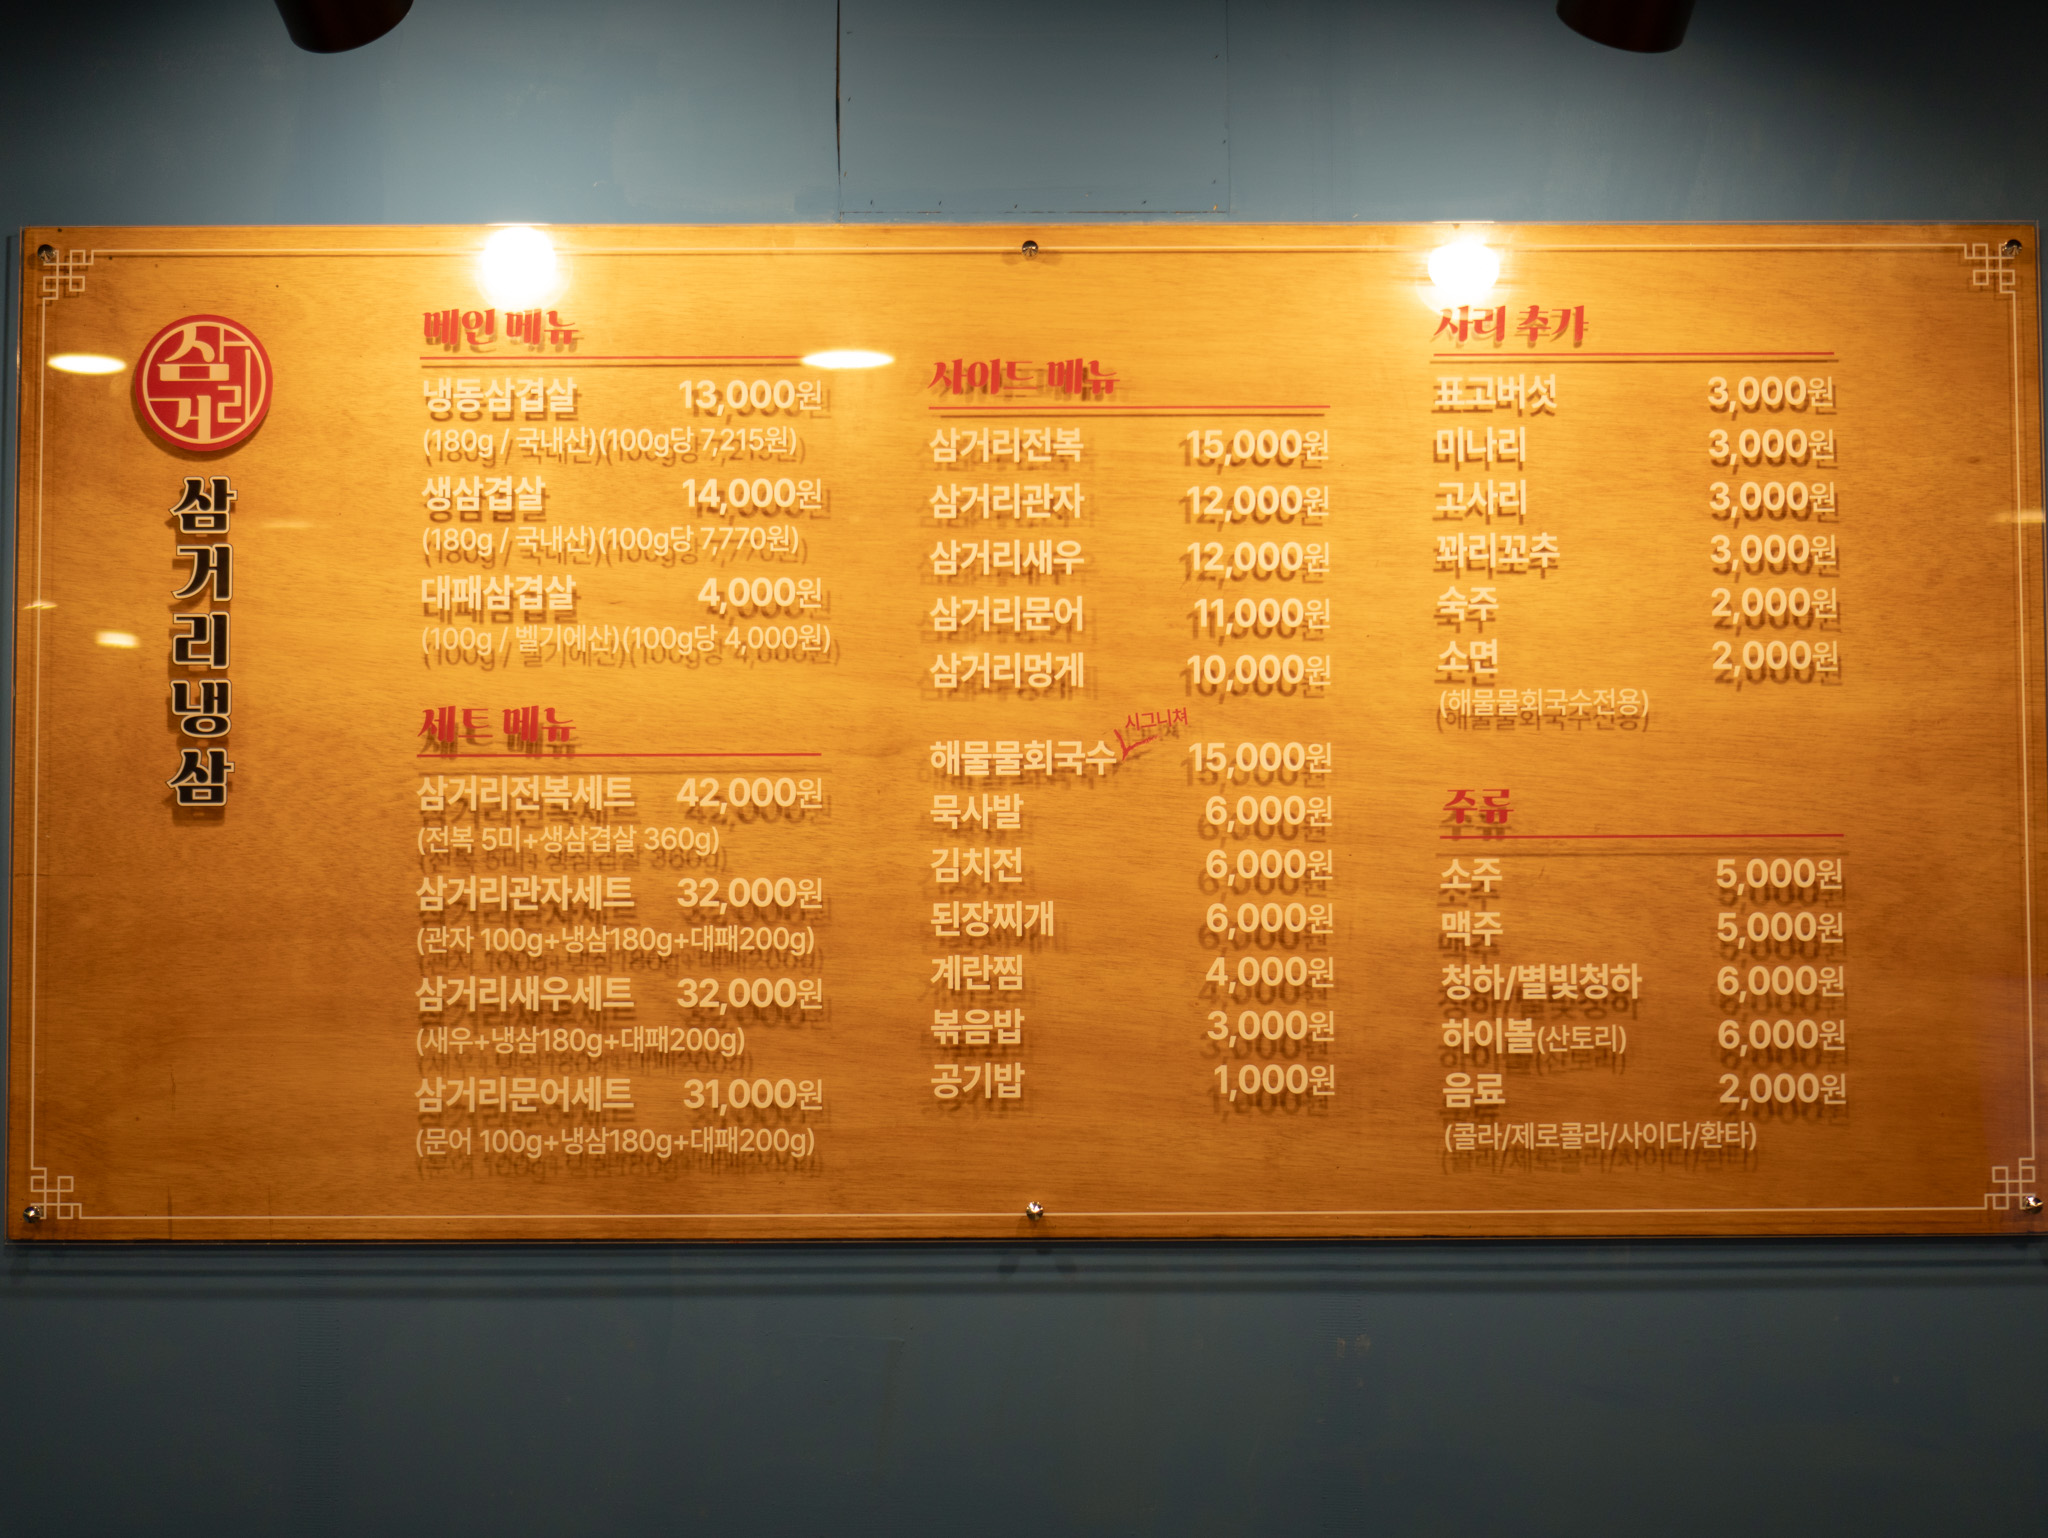 삼거리
삼거리냉삼
메인 메뉴
냉동삼겹살 13,000원
(180g / 국내산)(100g당 7,215원)
생삼겹살 14,000원
(180g / 국내산)(100g당 7,770원)
대패삼겹살 4,000원
(100g / 벨기에산)(100g당 4,000원)
세트 메뉴
삼거리전복세트 42,000원
(전복 5미+생삼겹살 360g)
삼거리관자세트 32,000원
(관자 100g+냉삼180g+대패200g)
삼거리새우세트 32,000원
(새우+냉삼180g+대패200g)
삼거리문어세트 31,000원
(문어 100g+냉삼180g+대패200g)
사이드 메뉴
삼거리전복 15,000원
삼거리관자 12,000원
삼거리새우 12,000원
삼거리문어 11,000원
삼거리멍게 10,000원
시그니쳐
해물물회국수 15,000원
묵사발 6,000원
김치전 6,000원
된장찌개 6,000원
계란찜 4,000원
볶음밥 3,000원
공기밥 1,000원
사리 추가
표고버섯 3,000원
미나리 3,000원
고사리 3,000원
꽈리꼬추 3,000원
숙주 2,000원
소면 2,000원
(해물물회국수전용)
주류
소주 5,000원
맥주 5,000원
청하/별빛청하 6,000원
하이볼(산토리) 6,000원
음료 2,000원
(콜라/제로콜라/사이다/환타)